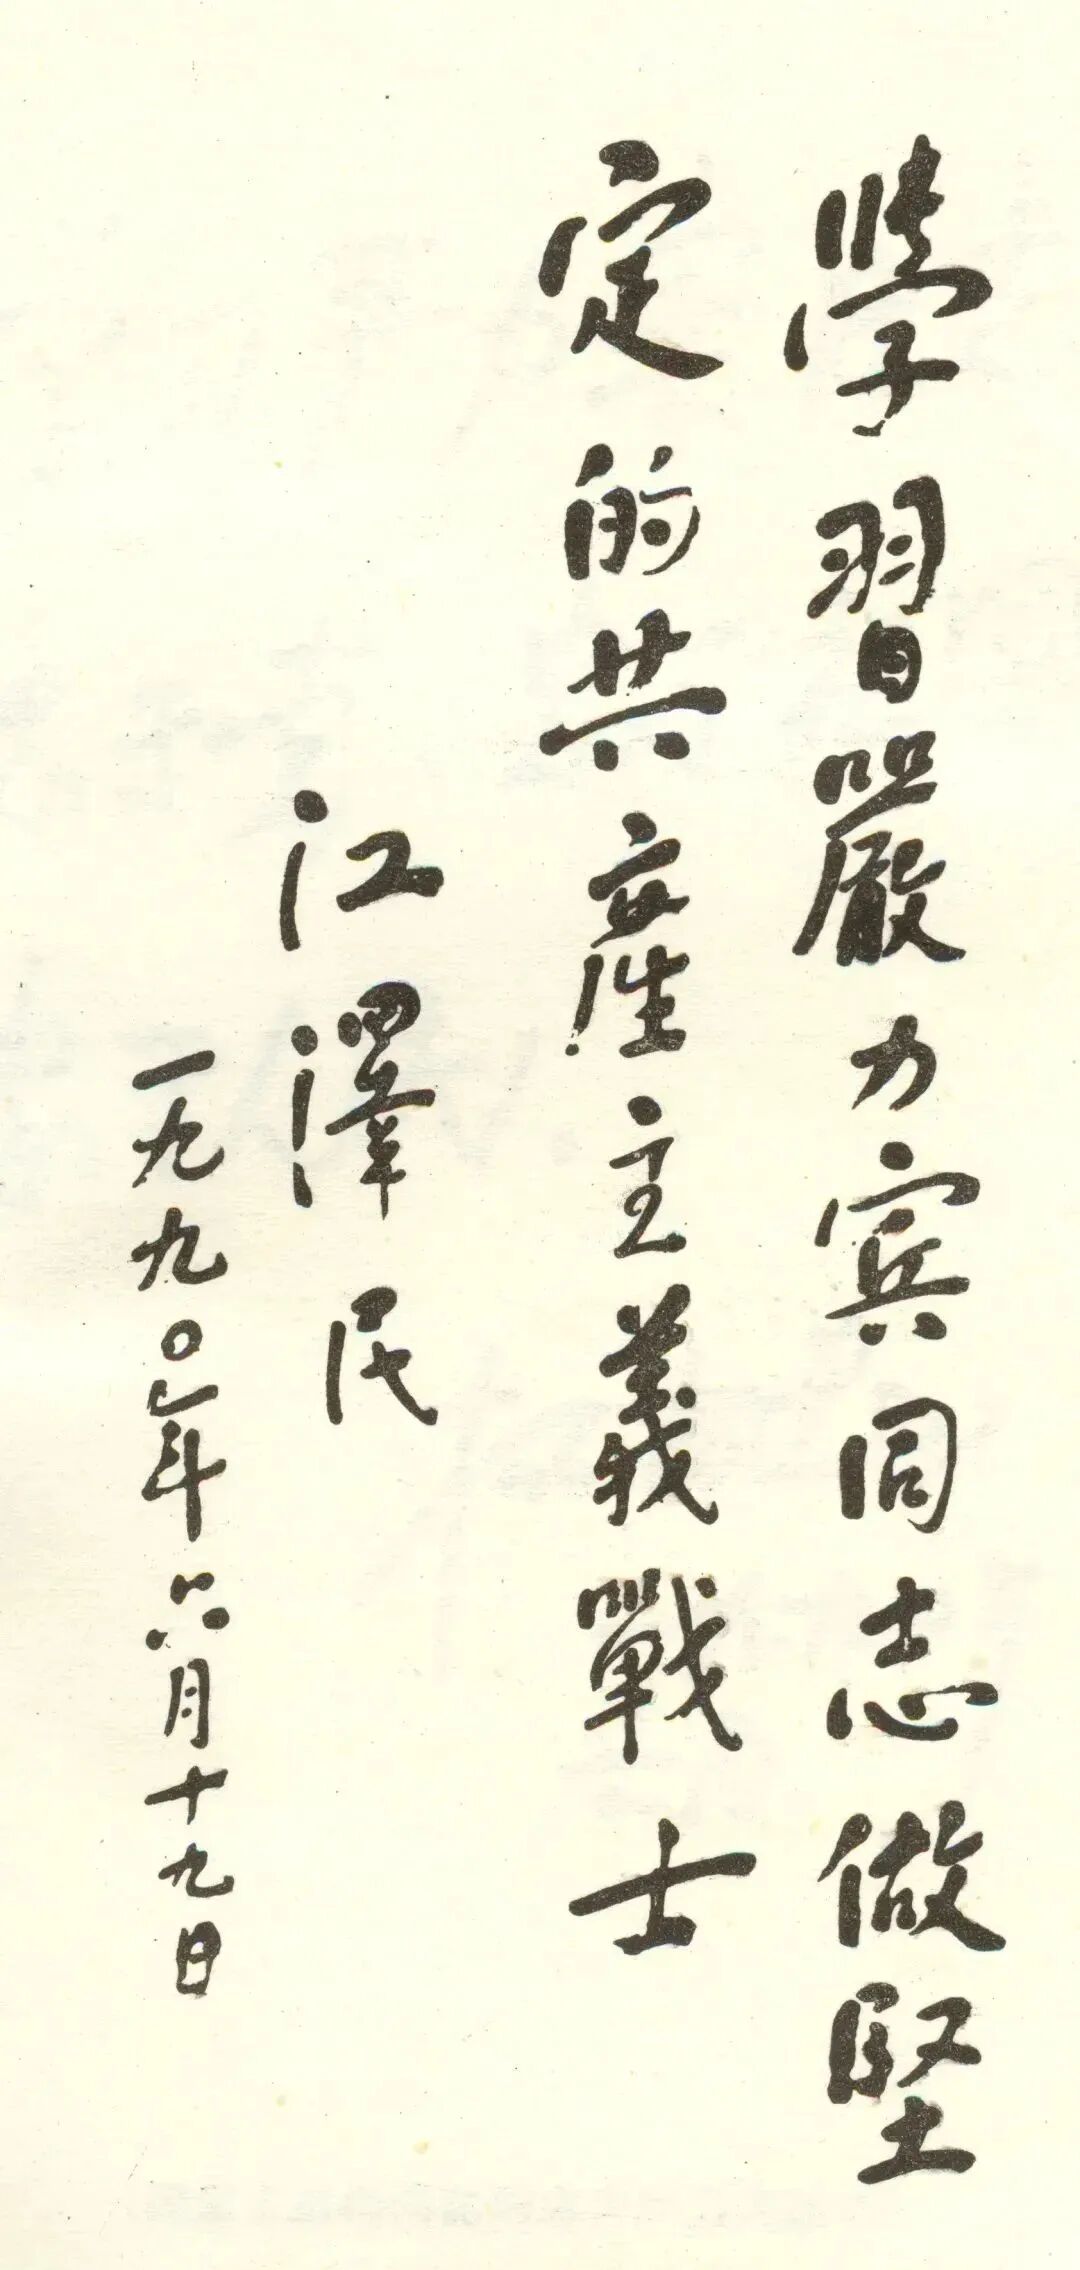 學習嚴力宾同志做堅
定的共產主義戰士
江澤民
一九九〇年六月十九日